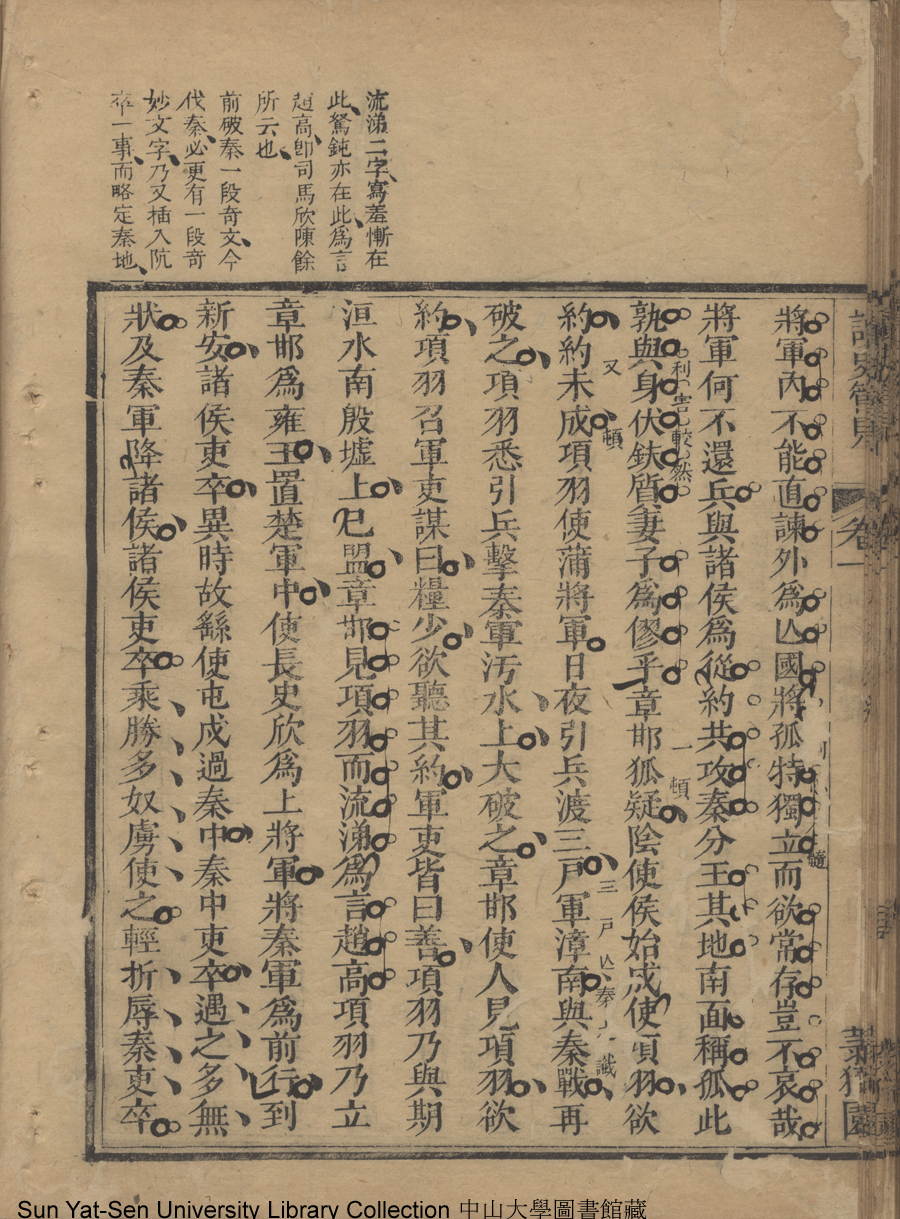 流涕二字寫羞慚在
此駑鈍亦在此爲言
趙高卽司馬欣陳餘
所云也
前破秦一段奇文今
代秦必更有一段奇
妙文字乃又插入阬
卒一事而略定秦地
卷一
將軍內不能直諫外爲亾國將孤特獨立而欲常存豈不哀哉
將軍何不還兵與諸侯爲從約共攻秦分王其地南面稱孤此
孰與身伏鈇質妻子爲僇乎章邯狐疑陰使侯始成使項羽欲
利害較然
一頓
約約未成項羽使蒲將軍日夜引兵渡三戶軍漳南與秦戰再
又頓
三戶亾秦讖
破之項羽悉引兵擊秦軍汚水上大破之章邯使人見項羽欲
約項羽召軍吏謀曰糧少欲聽其約軍吏皆曰善項羽乃與期
洹水南殷墟上已盟章邯見項羽而流涕爲言趙高項羽乃立
章邯爲雍王置楚軍中使長史欣爲上將軍將秦軍爲前行到
新安諸侯吏卒異時故繇使屯戍過秦中秦中吏卒遇之多無
狀及秦軍降諸侯諸侯吏卒乘勝多奴虜使之輕折辱秦吏卒
Sun Yat-Sen University Library Collection 中山大學圖書館藏